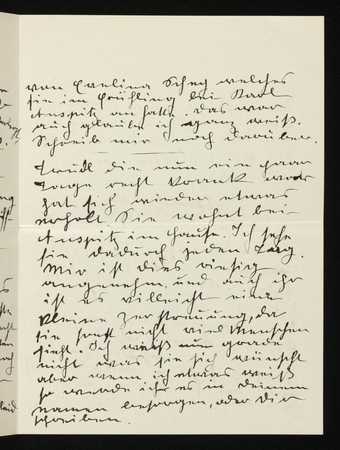 von Evelina Schey welches
sie im Frühling bei Karl
Auspitz an hatte. das war
auch glaube ich ganz weiß.
Schreib mir noch darüber.
Trudl die nun ein paar
Tage recht krank war
hat sich wieder etwas
erholt Sie wohnt bei
Auspitz im Hause. Ich sehe
sie dadurch jeden Tag.
Mir ist dies riesig
angenehm, und auch ihr
ist es villeicht eine
kleine Zerstreuung, da
sie sonst nicht viel Menschen
sieht. Ich weiß nun gerade
nicht was sie sich wünscht
aber wenn ich etwas weiß
so werde ich es in deinem
namen besorgen, oder dir
schreiben.